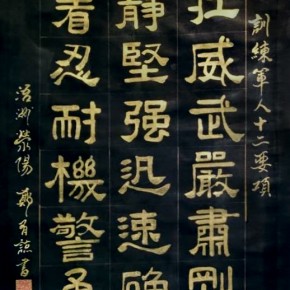 訓練軍人十二要項
壯威武嚴肅剛
靜堅强迅速確
着忍耐機警勇
浯洲滎陽 鄭有諒書